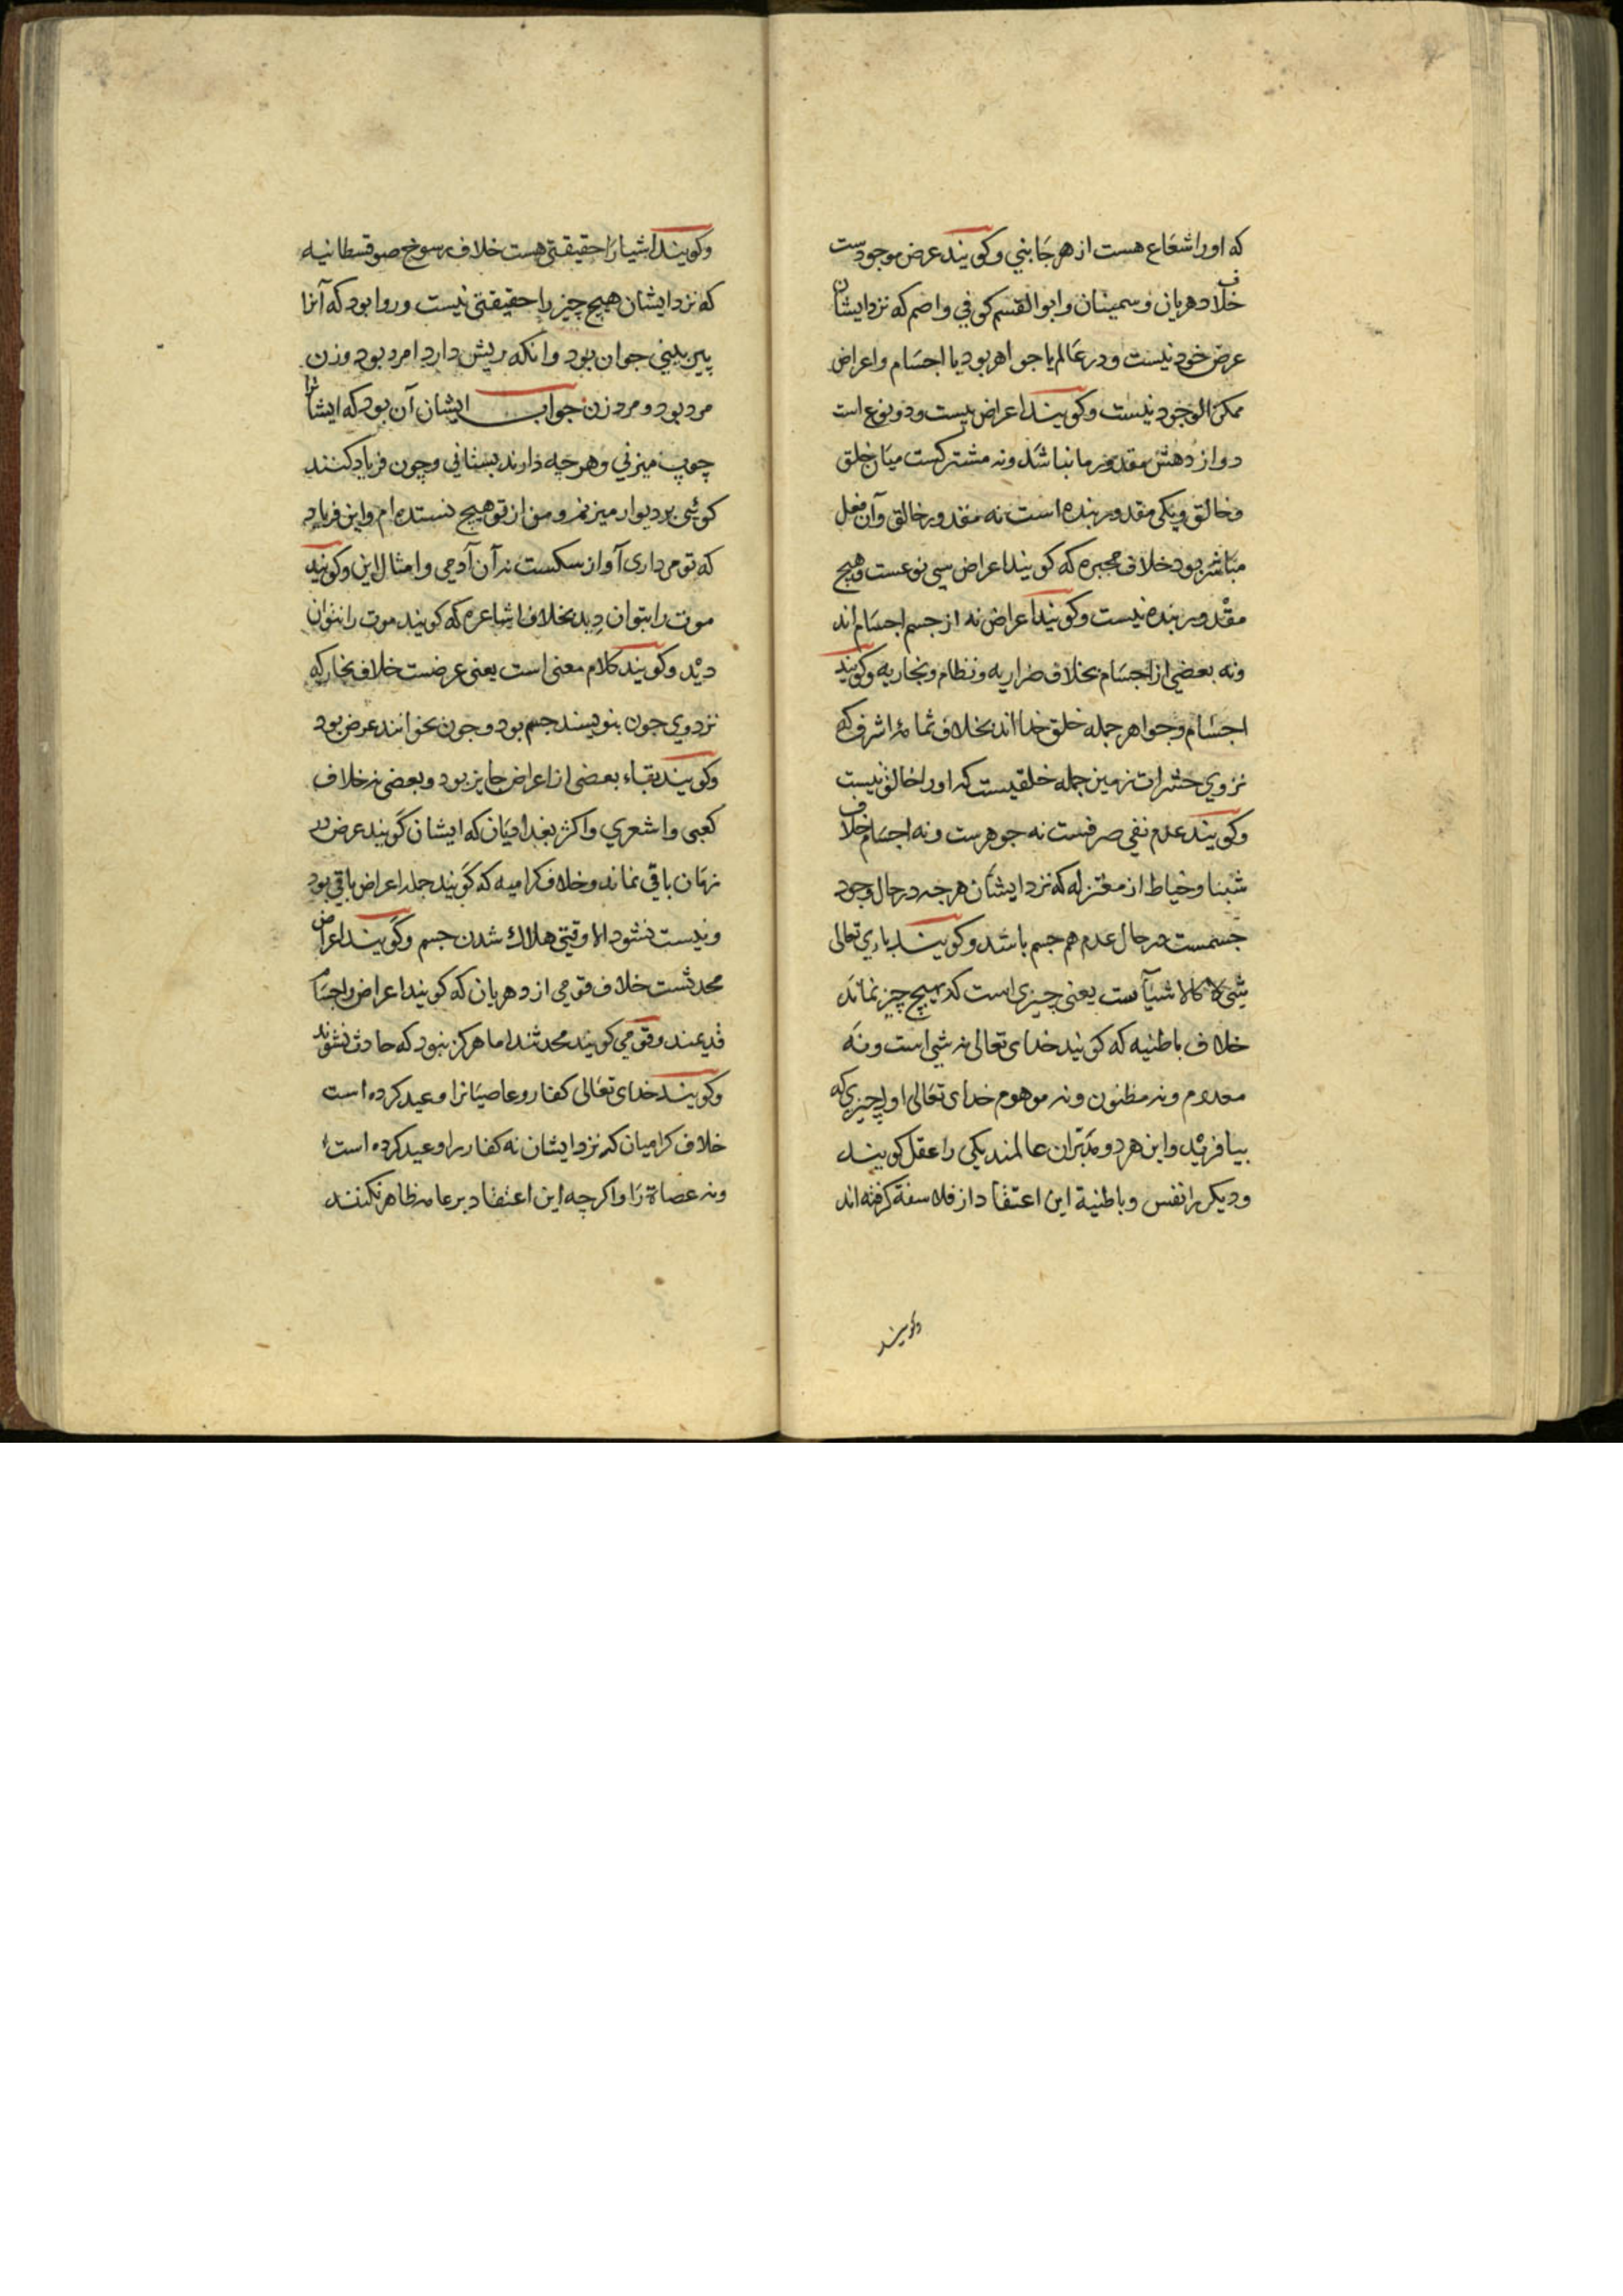 که او را شعاع هست از هر جانبی و کویند عرض موجودست
خلاف دهریان و سمینان و ابوالقسم کوفی و اصم که نزد ایشان
عرض خود نیست و در عالم یا جواهر بود یا اجسام و اعراض
ممکن الوجود نیست و کویند اعراض بیست و دو نوع است
دوازدهش مقدور ما نباشد ونه مشترکست میان خلق
و خالق و یکی مقدور بنده است نه مقدور خالق و آن فعل
مباشر بود خلاف مجبره که کویند اعراض سی نوعست و هیچ
مقدور بنده نیست و کویند اعراض نه از جسم اجسام اند
ونه بعضی از اجسام بخلاف ضراریه و نظام و نجاریه و کویند
اجسام و جواهر جمله خلق خدا اند بخلاف ثمامۀ اشرف که
نزد وی حشرات زمین جمله خلقیست که او را خالق نیست
و کویند عدم نفی صرفست نه جوهرست ونه اجسام خلاف
شبنا و خیاط از معتزله که نزد ایشان هرچه در حال وجود
جسمست در حال عدم هم جسم باشد و کویند باری تعالی
شیء لا کالاشیاست یعنی چیزی است که بهیچ چیز نماند
خلاف باطنیه که کویند خدای تعالی نه شی است ونه
معدوم ونه مظنون ونه موهوم خدای تعالی اول چیزی که
بیافرید و این هر دو مدبران عالمند یکی را عقل کویند
و دیکر را نفس و باطنیة این اعتقاد از فلاسفة کرفته اند
و کویند
و کویند اشیا را حقیقتی هست خلاف سوفسطانیه
که نزد ایشان هیچ چیز را حقیقتی نیست و روا بود که آنرا
پیر بینی جوان بود و انکه ریش دارد امرد بود و زن
مرد بود و مرد زن جواب ایشان آن بود که ایشانرا
چوب میزنی و هرچه دارند بستانی و چون فریاد کنند
کوئی بر دیوار میزنم و من از تو هیچ نستده ام و این فریاد
که تو می داری آواز سکست نه آن آدمی و امثال این و کویند
موت را بتوان دید بخلاف اشاعره که کویند موت را نتوان
دید و کویند کلام معنی است یعنی عرضست خلاف نجار که
نزد وی چون بنویسند جسم بود و چون بخوانند عرض بود
و کویند بقاء بعضی از اعراض جایز بود و بعضی نه خلاف
کعبی و اشعری و اکثر بغدادیان که ایشان کویند عرض دو
زمان باقی نماند و خلاف کرامیه که کویند جمله اعراض باقی بود
و نیست نشود الا وقتی هلاک شدن جسم و کویند اعراض
محدثست خلاف قومی از دهریان که کویند اعراض و اجسام
قدیمند و قومی کویند محدثند اما هرکز نبود که حادث نشوند
و کویند خدای تعالی کفار و عاصیانرا وعید کرده است
خلاف کرامیان که نزد ایشان نه کفار را وعید کرده است
ونه عصاة را و اکرچه این اعتقاد بر عامه ظاهر نکنند